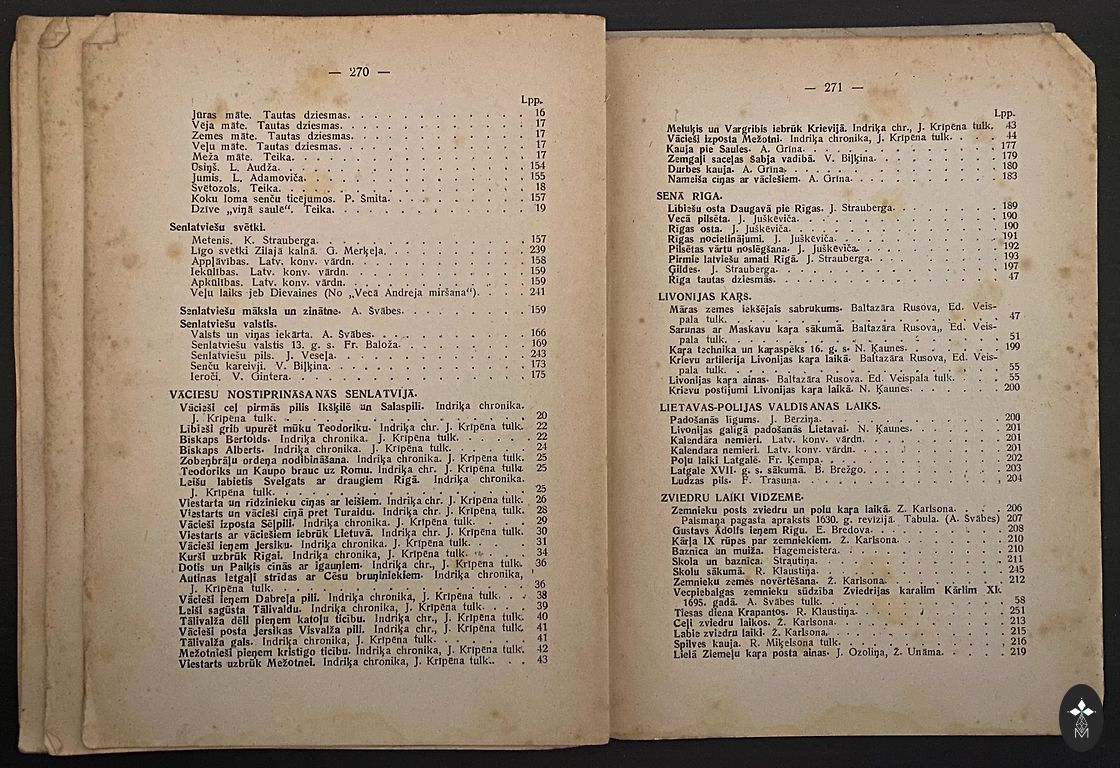 — 270 —
Lpp.
Jūras māte. Tautas dziesmas. 16
Vēja māte. Tautas dziesmas. 17
Zemes māte. Tautas dziesmas. 17
Veļu māte. Tautas dziesmas. 17
Meža māte. Teika. 17
Ūsiņš. L. Audža. 154
Jumis. L. Adamoviča. 155
Svētozols. Teika. 18
Koku loma senču ticējumos. P. Šmita. 157
Dzīve „viņā saulē“. Teika. 19
Senlatviešu svētki.
Metenis. K. Strauberga. 157
Līgo svētki Zilajā kalnā. G. Merķeļa. 239
Appļāvības. Latv. konv. vārdn. 158
Iekūlības. Latv. konv. vārdn. 159
Apkūlības. Latv. konv. vārdn. 159
Veļu laiks jeb Dievaines (No „Vecā Andreja miršana“). 241
Senlatviešu māksla un zinātne. A. Švābes. 159
Senlatviešu valstis.
Valsts un viņas iekārta. A. Švābes. 166
Senlatviešu valstis 13. g. s. Fr. Baloža. 169
Senlatviešu pils. J. Veseļa. 243
Senču kareivji. V. Biļķina. 173
Ieroči. V. Ģintera. 175
VĀCIEŠU NOSTIPRINĀŠANĀS SENLATVIJĀ.
Vācieši ceļ pirmās pilis Ikšķilē un Salaspilī. Indriķa chronika.
J. Krīpēna tulk. 20
Libieši grib upurēt mūku Teodoriku. Indriķa chr. J. Krīpēna tulk. 22
Biskaps Bertolds. Indriķa chronika. J. Krīpēna tulk. 22
Biskaps Alberts. Indriķa chronika. J. Krīpēna tulk. 24
Zobenbrāļu ordeņa nodibināšana. Indriķa chronika. J. Krīpēna tulk. 25
Teodoriks un Kaupo brauc uz Romu. Indriķa chr. J. Krīpēna tulk. 25
Leišu labietis Svelgats ar draugiem Rīgā. Indriķa chronika.
J. Krīpēna tulk. 25
Viestarta un rīdzinieku cīņas ar leišiem. Indriķa chr. J. Krīpēna tulk. 26
Viestarts un vācieši cīņā pret Turaidu. Indriķa chr. J. Krīpēna tulk. 28
Vācieši izposta Sēlpili. Indriķa chronika. J. Krīpēna tulk. 29
Viestarts ar vāciešiem iebrūk Lietuvā. Indriķa chr. J. Krīpēna tulk. 30
Vācieši ieņem Jersiku. Indriķa chronika. J. Krīpēna tulk. 31
Kurši uzbrūk Rīgai. Indriķa chronika, J. Krīpēna tulk. 34
Dotis un Paiķis cīnās ar igauņiem. Indriķa chr., J. Krīpēna tulk. 36
Autīnas letgaļi strīdas ar Cēsu bruņiniekiem. Indriķa chronika,
J. Krīpēna tulk. 36
Vācieši ieņem Dabreļa pili. Indriķa chronika, J. Krīpēna tulk. 38
Leiši sagūsta Tālivaldu. Indriķa chronika, J. Krīpēna tulk. 39
Tālivalža dēli pieņem katoļu ticību. Indriķa chr., J. Krīpēna tulk. 40
Vācieši posta Jersikas Visvalža pili. Indriķa chr., J. Krīpēna tulk. 41
Tālivalža gals. Indriķa chronika, J. Krīpēna tulk. 41
Mežotnieši pieņem kristīgo ticību. Indriķa chr., J. Krīpēna tulk. 42
Viestarts uzbrūk Mežotnei. Indriķa chronika, J. Krīpēna tulk. 43
— 271 —
Lpp.
Meluķis un Vargribis iebrūk Krievijā. Indriķa chr., J. Krīpēna tulk. 43
Vācieši izposta Mežotni. Indriķa chronika, J. Krīpēna tulk. 44
Kauja pie Saules. A. Grīna. 177
Zemgaļi saceļas Šabja vadībā. V. Biļķina. 179
Durbes kauja. A. Grīna. 180
Nameiša cīņas ar vāciešiem. A. Grīna. 183
SENĀ RĪGA.
Libiešu osta Daugavā pie Rīgas. J. Strauberga. 189
Vecā pilsēta. J. Juškēviča. 190
Rīgas osta. J. Juškēviča. 190
Rīgas nocietinājumi. J. Juškēviča. 191
Pilsētas vārtu noslēgšana. J. Juškēviča. 192
Pirmie latviešu amati Rīgā. J. Strauberga. 193
Ģildes. J. Strauberga. 197
Rīga tautas dziesmās. 47
LIVONIJAS KAŖŠ.
Māras zemes iekšējais sabrukums. Baltazāra Rusova, Ed. Veis-
pala tulk. 47
Sarunas ar Maskavu kaŗa sākumā. Baltazāra Rusova,, Ed. Veis-
pala tulk. 51
Kaŗa technika un kaŗaspēks 16. g. s. N. Ķaunes. 199
Krievu artilerija Livonijas kaŗa laikā. Baltazāra Rusova, Ed. Veis-
pala tulk. 55
Livonijas kaŗa ainas. Baltazāra Rusova. Ed. Veispala tulk. 55
Krievu postījumi Livonijas kaŗa laikā. N. Ķaunes. 200
LIETAVAS-POLIJAS VALDĪŠANAS LAIKS.
Padošanās līgums. J. Bērziņa. 200
Livonijas galīgā padošanās Lietavai. N. Ķaunes. 201
Kalendāra nemieri. Latv. konv. vārdn. 201
Kalendara nemieri. Latv. konv. vārdn. 201
Poļu laiki Latgalē. Fr. Ķempa. 202
Latgale XVII. g. s. sākumā. B. Brežgo. 203
Ludzas pils. F. Trasuņa. 204
ZVIEDRU LAIKI VIDZEMĒ.
Zemnieku posts zviedru un poļu kaŗa laikā. Z. Karlsona. 206
Palsmaņa pagasta apraksts 1630. g. revīzijā. Tabula. (A. Švābes) 207
Gustavs Ādolfs ieņem Rīgu. E. Bredova. 208
Kārļa IX rūpes par zemniekiem. Ž. Karlsona. 210
Baznīca un muiža. Hagemeistera. 210
Skola un baznīca. Strautiņa. 211
Skolu sākumā. R. Klaustiņa. 245
Zemnieku zemes novērtēšana. Ž. Karlsona. 212
Vecpiebalgas zemnieku sūdzība Zviedrijas karalim Kārlim XI.
1695. gadā. A. Švābes tulk. 58
Tiesas diena Krapantos. R. Klaustiņa. 251
Ceļi zviedru laikos. Ž. Karlsona. 213
Labie zviedru laiki. Ž. Karlsona. 215
Spilves kauja. R. Miķelsona tulk. 216
Lielā Ziemeļu kaŗa posta ainas. J. Ozoliņa, Ž. Unāma. 219